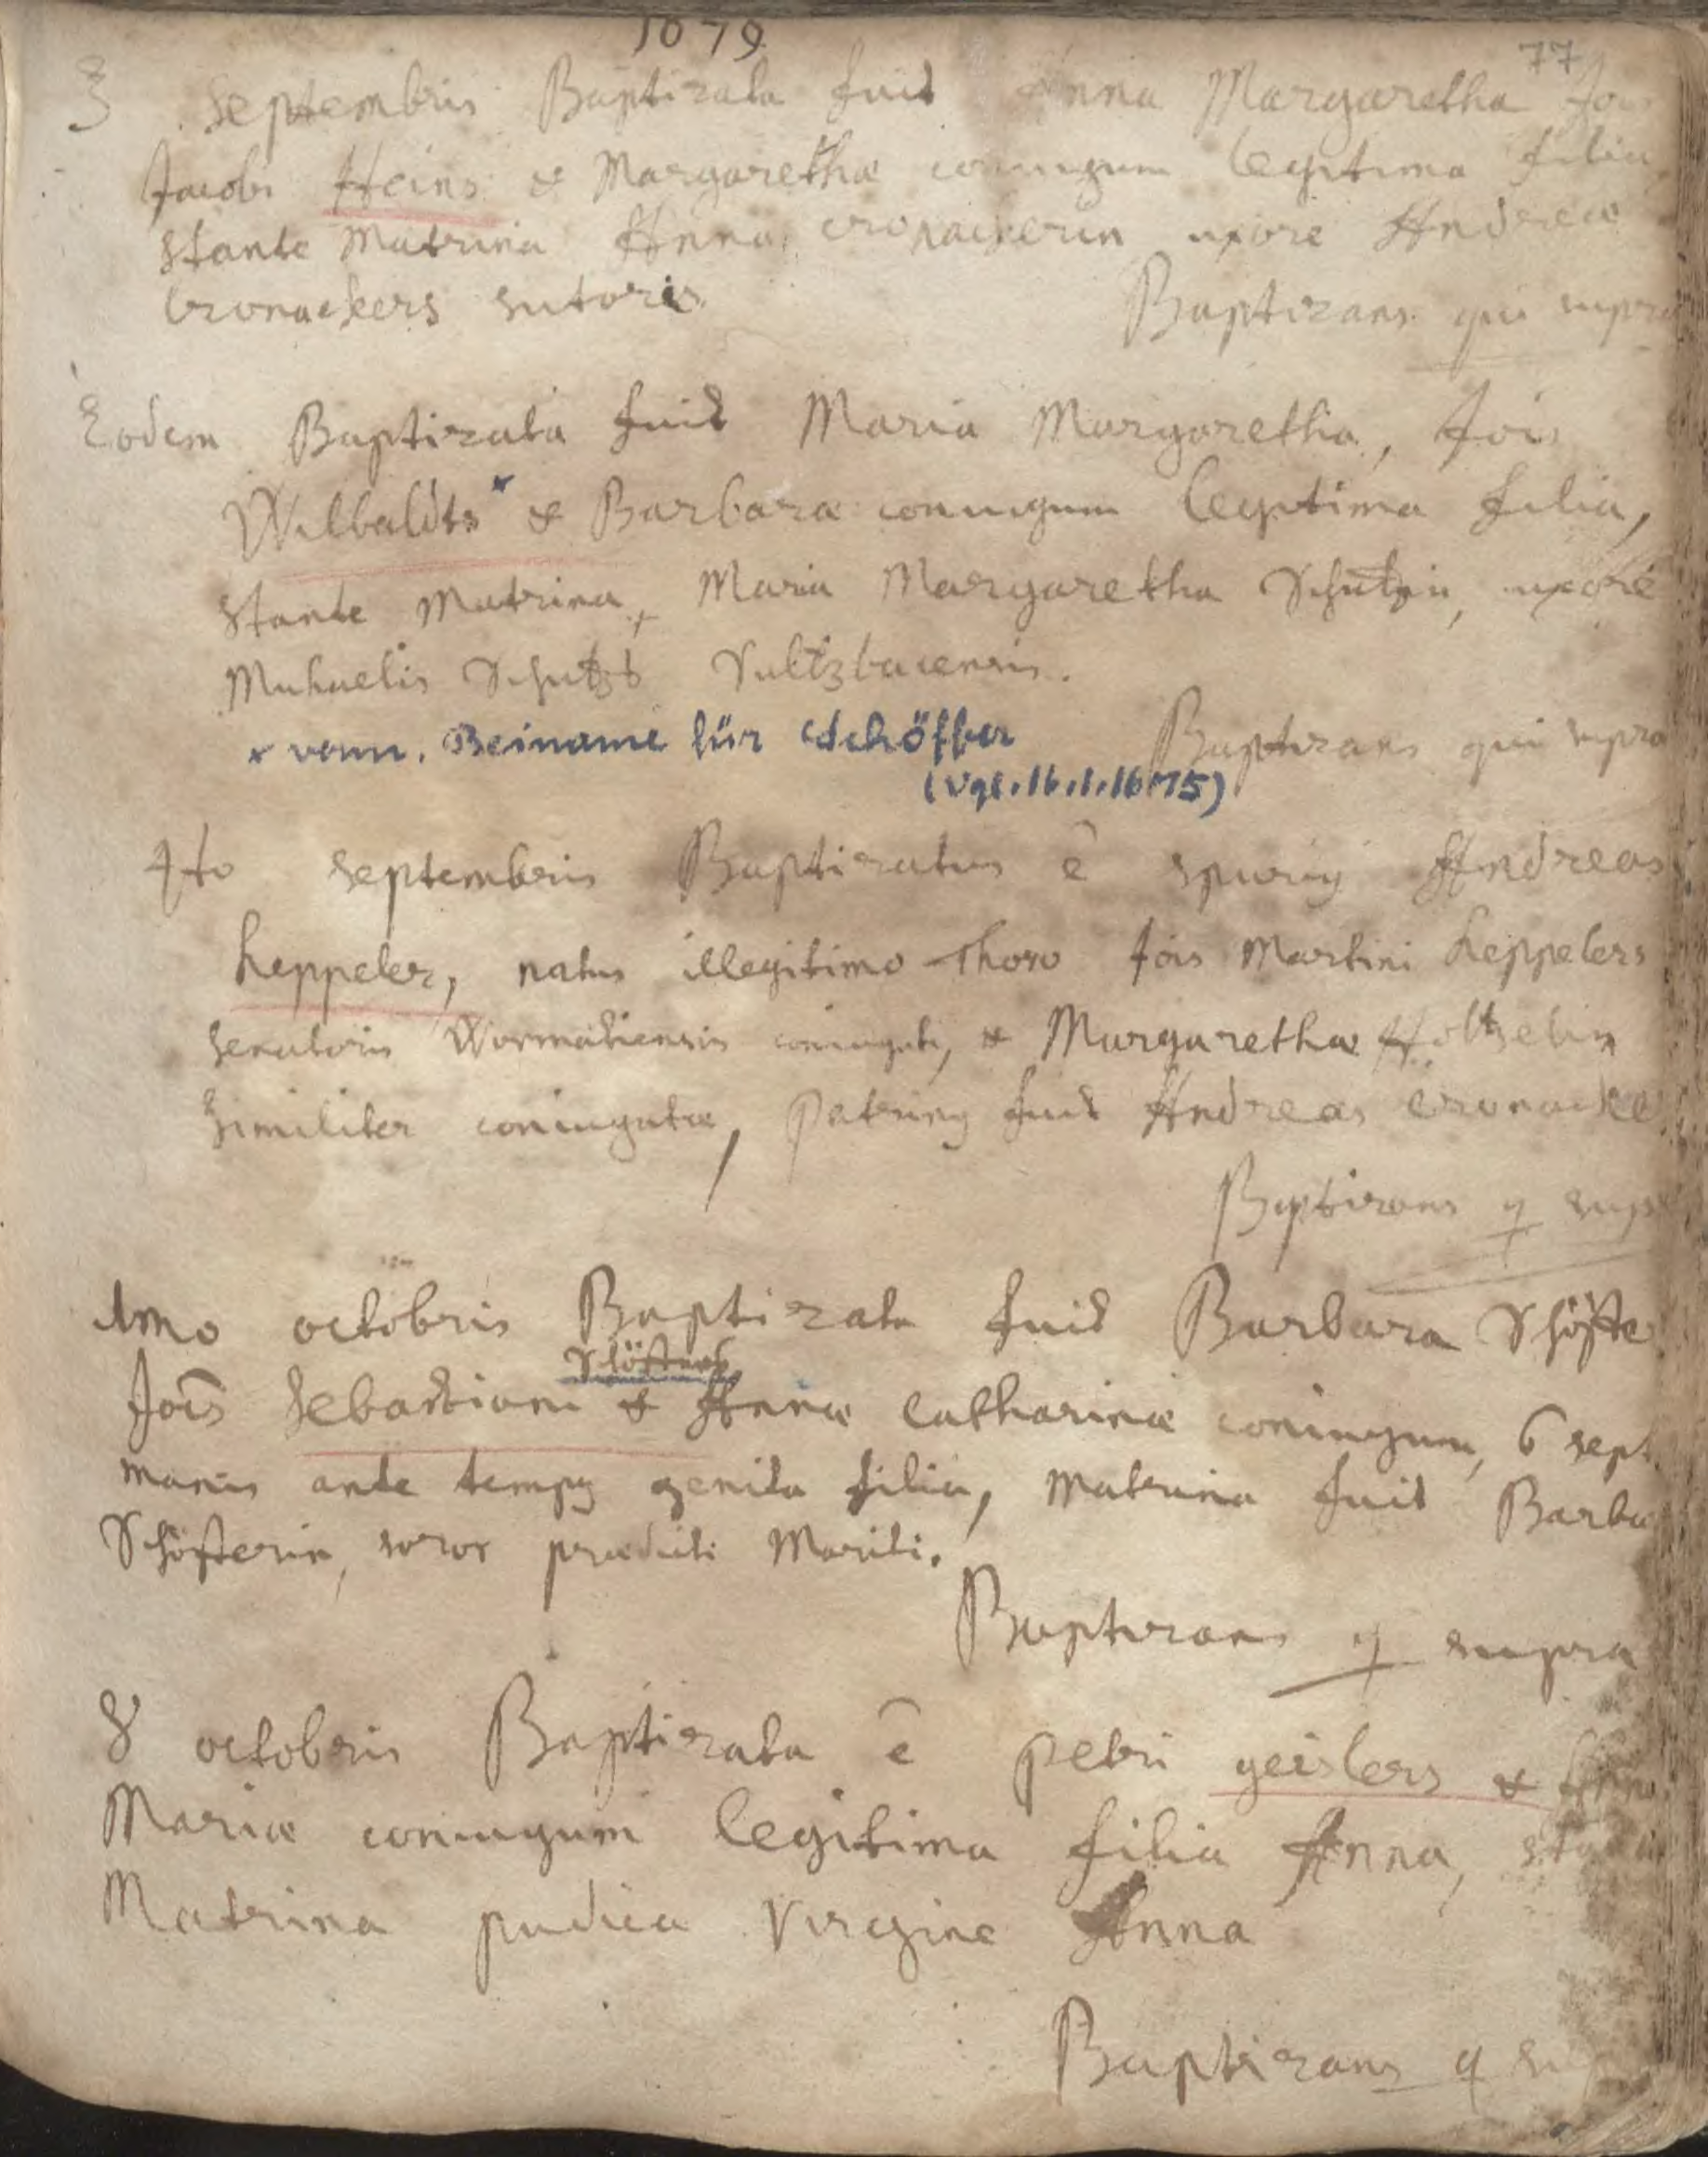 1679
77
3 Septembris Baptizata fuit Anna Margaretha Jois
Jacobi Heins & Margarethæ coniugum legitima filia,
stante Matrina Anna Cronackerin uxore Andreæ
Cronackers sutoris.
Baptizans qui supra
Eodem Baptizata fuit Maria Margaretha, Jois
Wilbaldts * & Barbaræ coniugum legitima filia,
stante Matrina, Maria Margaretha Schutzin, uxore
Michaelis Schutzs Sultzbacensis.
* verm. Beiname für Schöffer
(Vgl. 16.1.1675)
Baptizans qui supra
4to Septembris Baptizatus ē spurius Andreas
Keppeler, natus illegitimo Thoro Jois Martini Keppelers
senatoris Wormatiensis coniugati, & Margarethæ Holtzelin
similiter coniugatæ, patrinus fuit Andreas Cronacke
Baptizans q sup
1mo octobris Baptizata fuit Barbara Schöffe
Schöffers
Jois Sebastiani & Annæ Catharinæ coniugum, 6 sept
manis ante tempus genita filia, Matrina fuit Barba
Schöfferin, soror prædicti Mariti.
Baptizans q supra
8 octobris Baptizata ē petri geislers & Anna
Mariæ coniugum legitima filia Anna,
Matrina pudica Virgine Anna
Baptizans q